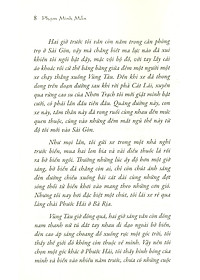 8 Phạm Minh Mẫn
Hai giờ trước tôi vẫn còn nằm trong căn phòng
trọ ở Sài Gòn, vậy mà chẳng biết ma lực nào đã xui
khiến tôi ngồi bật dậy, mặc vội bộ đồ, với tay lấy cái
áo khoác rồi cứ thế băng băng giữa đêm một nguồn một
xe chạy thẳng xuống Vũng Tàu. Đến khi xe đã thong
dong trên con lộ vắng tanh, rời phà Cát Lái, xuyên
qua rừng cao su của Nhơn Trạch tôi mới giật mình bật
cười, có phải lần đầu tiên đâu. Quãng đường này, cơn
say xe, nhưng tâm thần đã vòng rượt cùng nhau đến mòn
quen thuộc, cùng với những đêm mất ngủ thế này từ
độ tôi mới vào Sài Gòn.
Như mọi lần, tôi ghé xe trong một nhà nghỉ
trước biển, mua hai lon bia và vài điếu thuốc lá rồi
ra bờ biển ngồi. Thường những lúc ấy độ hơn một giờ
sáng, bờ biển đã chẳng còn ai, chỉ còn chút ánh sáng
đèn đường chiếu xuống bãi cát dài cùng những đợt
sóng thổi từ biển khơi vào mang theo những cơn gió.
Nhưng tối nay hơi đặc biệt một chút, tôi lái xe về phía
làng chài Phước Hải ở Bà Rịa.
Vũng Tàu giờ đông quá, hai giờ sáng vẫn còn đông
nam thanh nữ tú dắt tay nhau đi dạo ngoài bờ biển,
đèn cao áp sáng choang đổ xuống rực một góc trời, tôi
thấy thế giới đó không còn thuộc về mình. Vậy nên tôi
chọn một góc khác ở Phước Hải, tôi thấy bình bóng của
mình cả biển vào nhiều năm trước, chưa có những cuộc